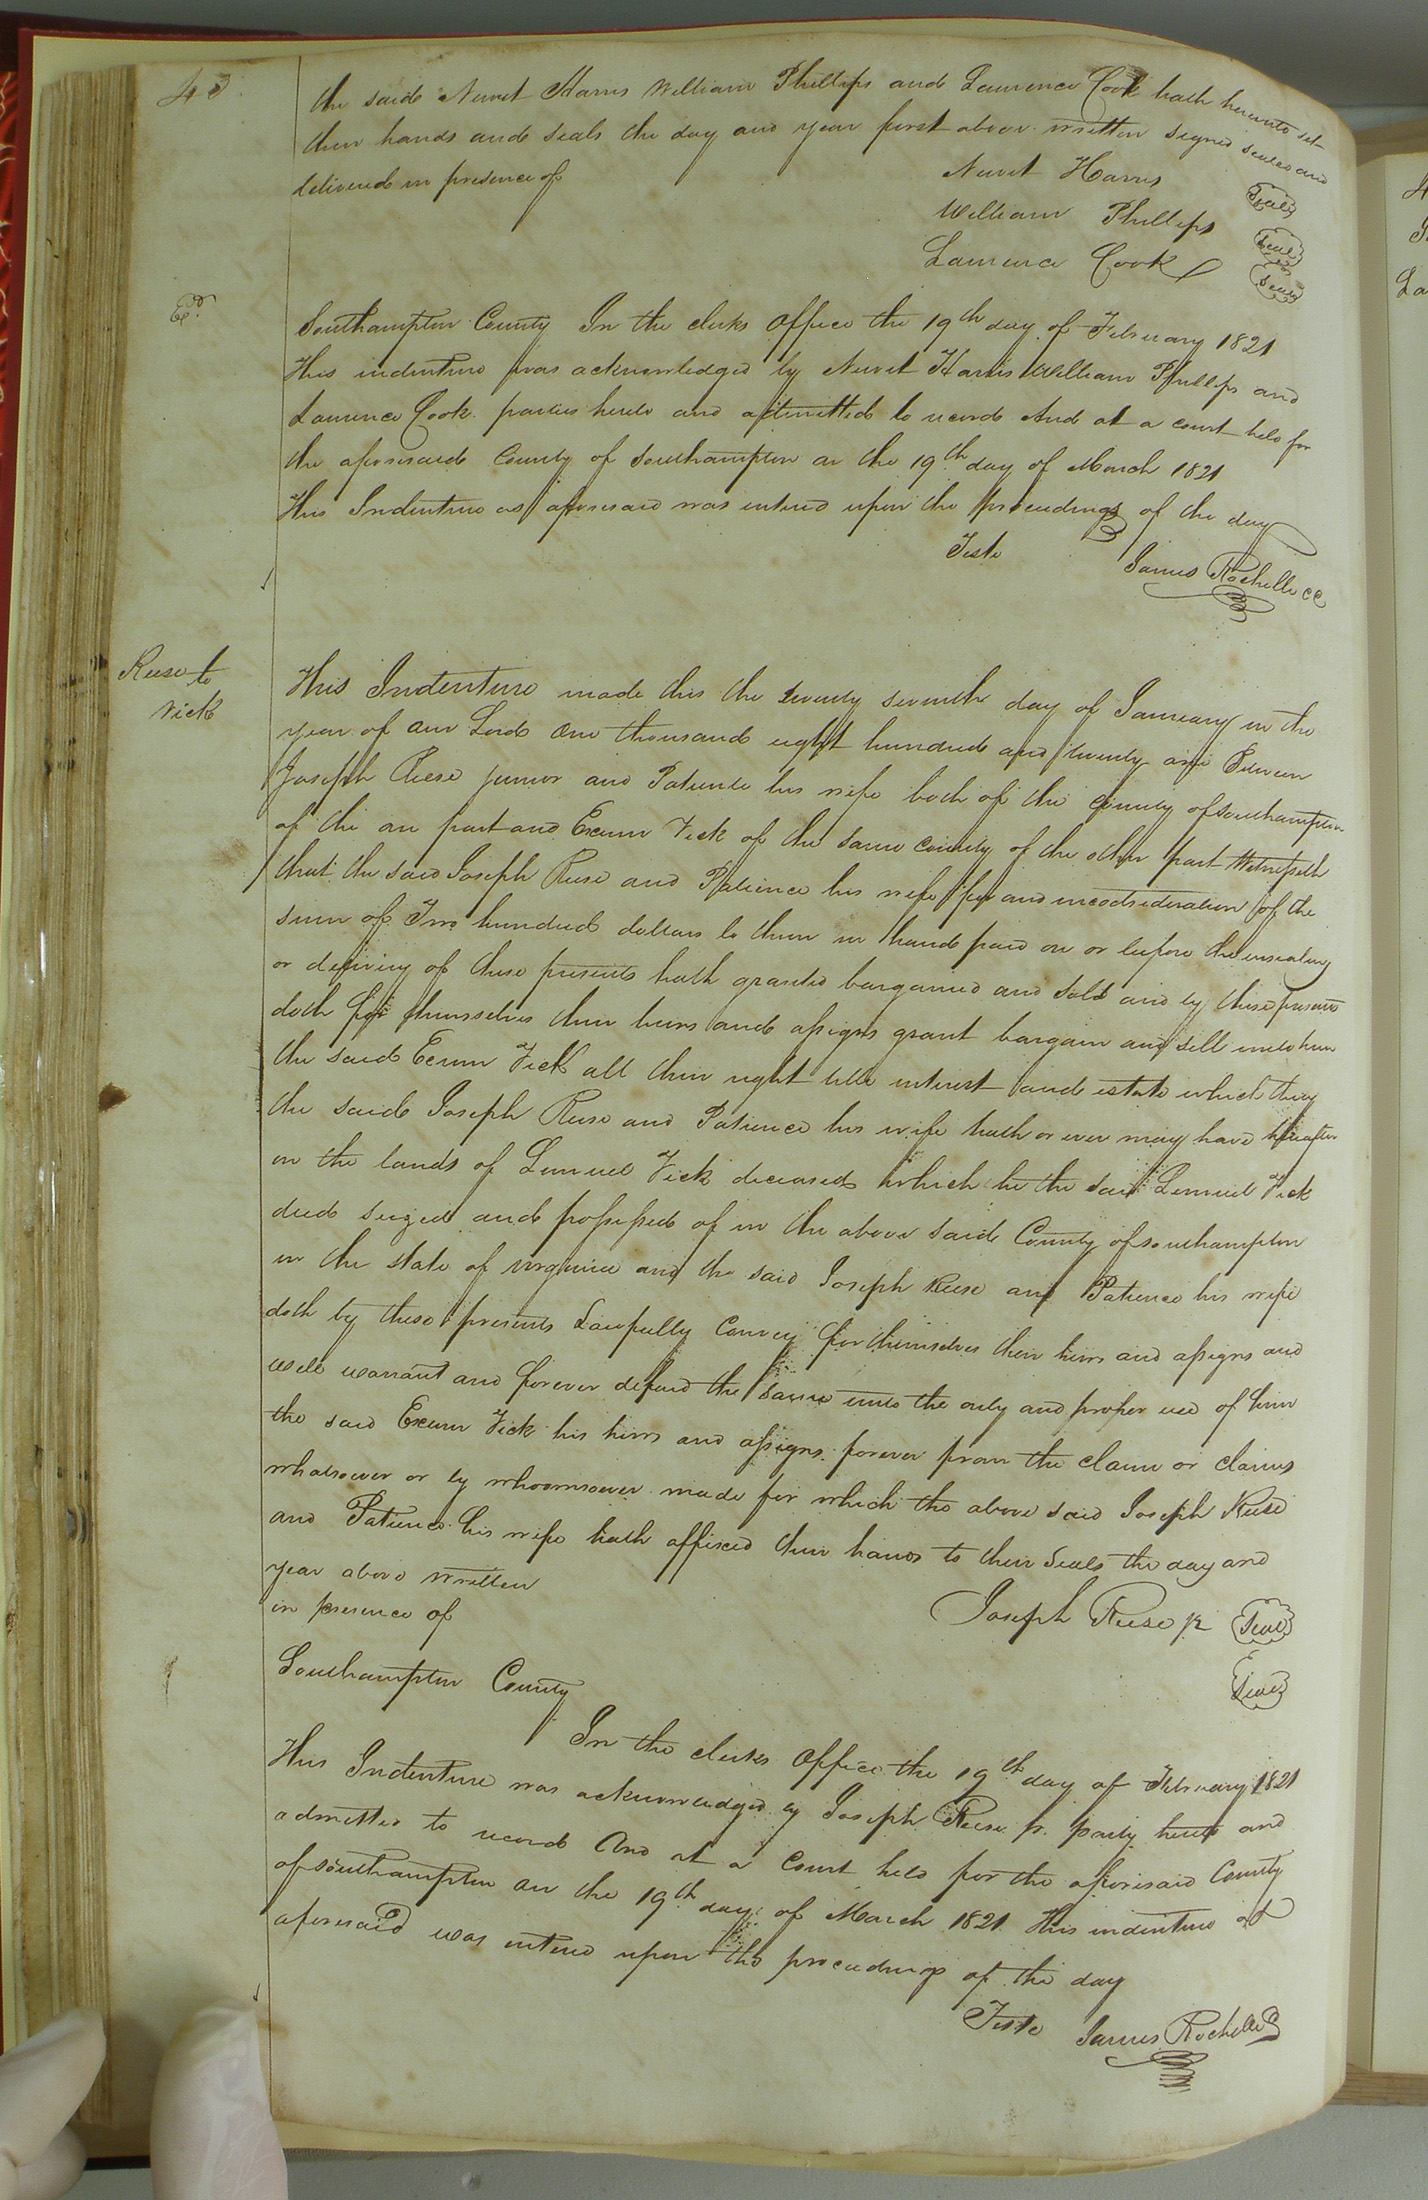 the said Newit Harris William Phillips and Laurence Cook hath hereunto set
their hands and seals the day and year first above written signed sealed and
delivered in presence of
Newit Harris Seal
William Phillips Seal
Laurence Cook Seal
Exd.
Southampton County In the clerks office the 19th day of February 1821
This indenture was acknowledged by Newit Harris William Phillips and
Laurence Cook parties hereto and admitted to record And at a court held for
the aforesaid County of Southampton on the 19th day of March 1821
This Indenture as aforesaid was entered upon the proceedings of the day
Teste James Rochelle CC
Reese to
Vick
This Indenture made this the twenty seventh day of January in the
year of our Lord one thousand eight hundred and twenty one Between
Joseph Reese junior and Patience his wife both of the county of Southampton
of the one part and Exum Vick of the same county of the other part Witnesseth
that the said Joseph Reese and Patience his wife for and in consideration of the
sum of Two hundred dollars to them in hand paid on or before the ensealing
or delivery of these presents hath granted bargained and sold and by these presents
doth for themselves their heirs and assigns grant bargain and sell unto him
the said Exum Vick all their right title interest and estate which they
the said Joseph Reese and Patience his wife hath or ever may have hereafter
on the lands of Lemuel Vick deceased which he the said Lemuel Vick
died seized and possessed of in the above said County of Southampton
in the state of Virginia and the said Joseph Reese and Patience his wife
doth by these presents Lawfully Convey for themselves their heirs and assigns and
will warrant and forever defend the same unto the only and proper use of him
the said Exum Vick his heirs and assigns forever from the claim or claims
whatsoever or by whoomsoever made for which the above said Joseph Reese
and Patience his wife hath affixed their hands to their Seals the day and
year above written
in presence of
Joseph Reese jr Seal
Seal
Southampton County
In the clerks office the 19th day of February 1821
This Indenture was acknowledged by Joseph Reese jr. party hereto and
admitted to record And at a Court held for the aforesaid County
of Southampton on the 19th day of March 1821 This indenture as
aforesaid was entered upon the proceedings of the day
Teste James Rochelle